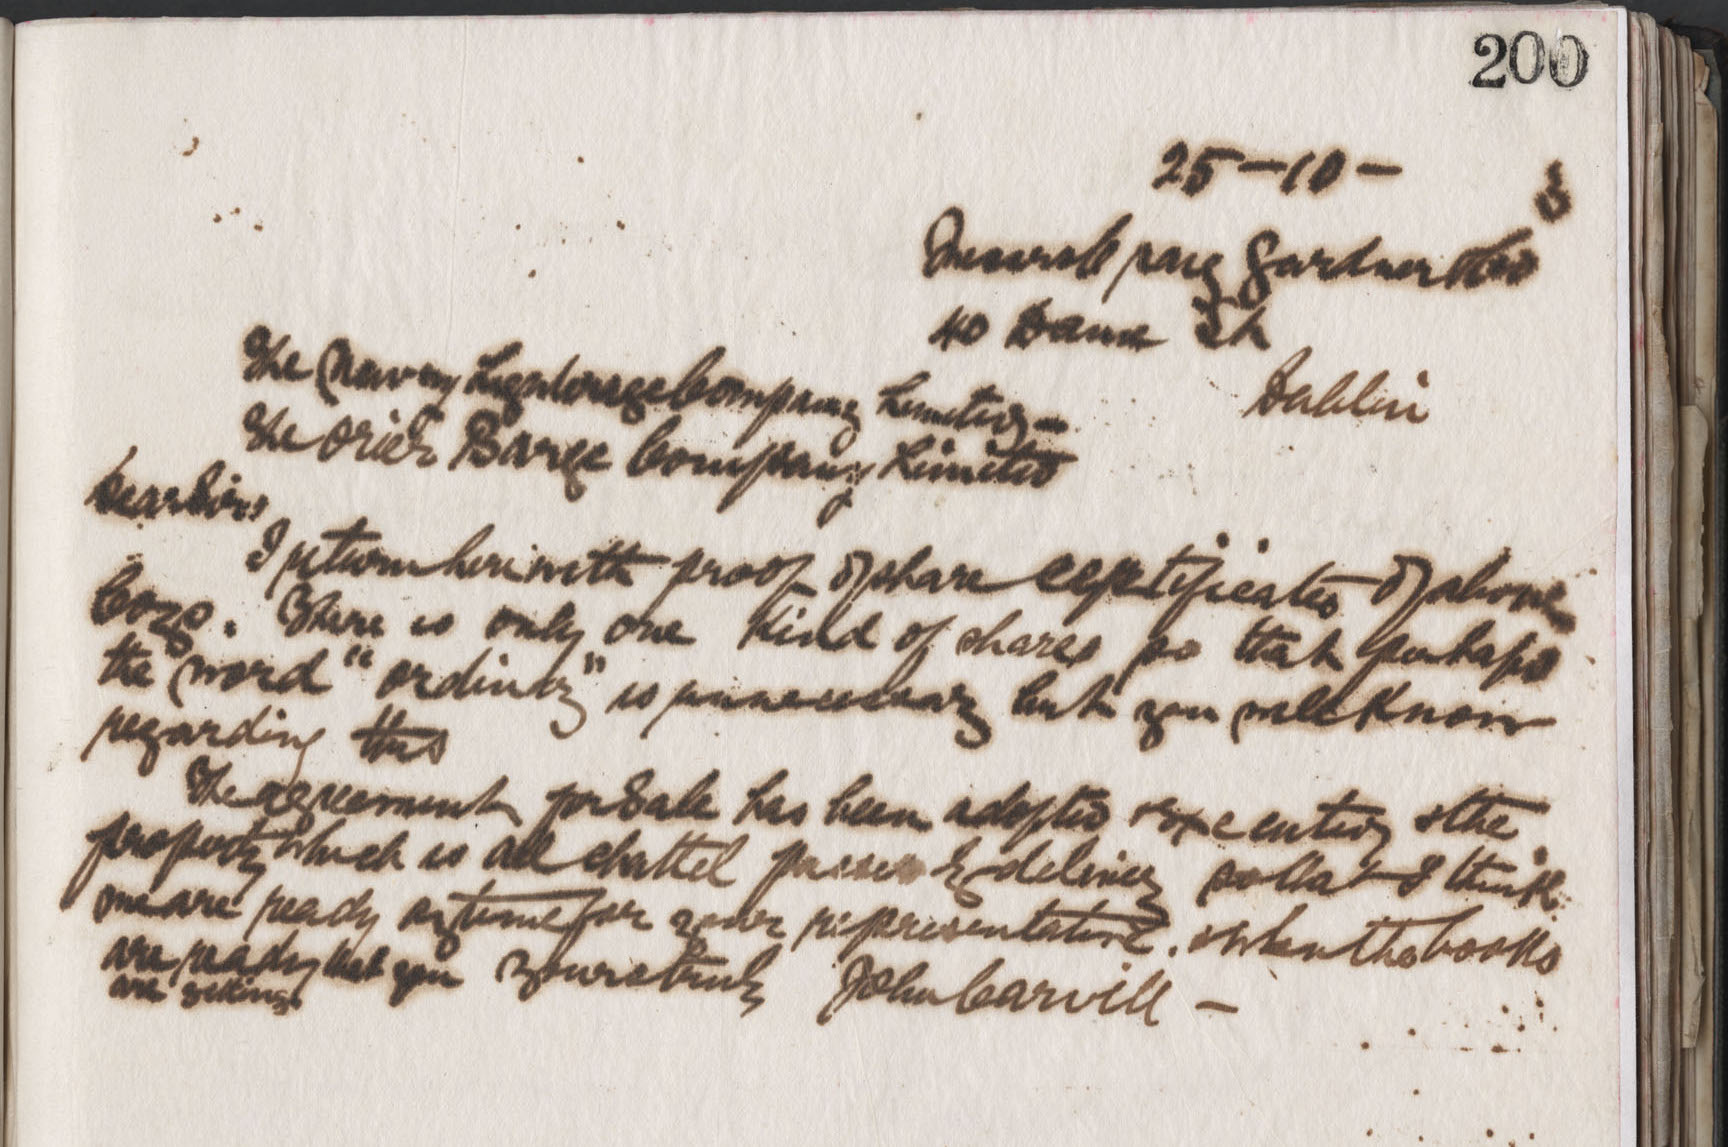 200
25-10-
Messrs Craig Gardner & Co
40 Dame St
Dublin
The Newry Lighterage Company Limited
The Brick Barge Company Limited
Dear Sirs
I return herewith proof of share certificates of above
Coys. There is only one kind of shares so that perhaps
the word "ordinary" is unnecessary but you will know
regarding this
The agreement for Sale has been adopted & executed & the
property which is all chattel passes by delivery so that I think
we are ready any time for your representative. when the books
are ready that you Yours truly John Carvill -
are getting